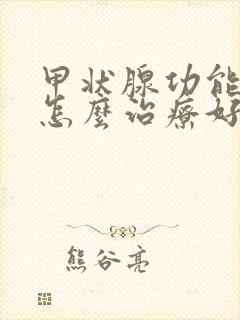 甲状腺功能
怎麼治療好
熊谷亮